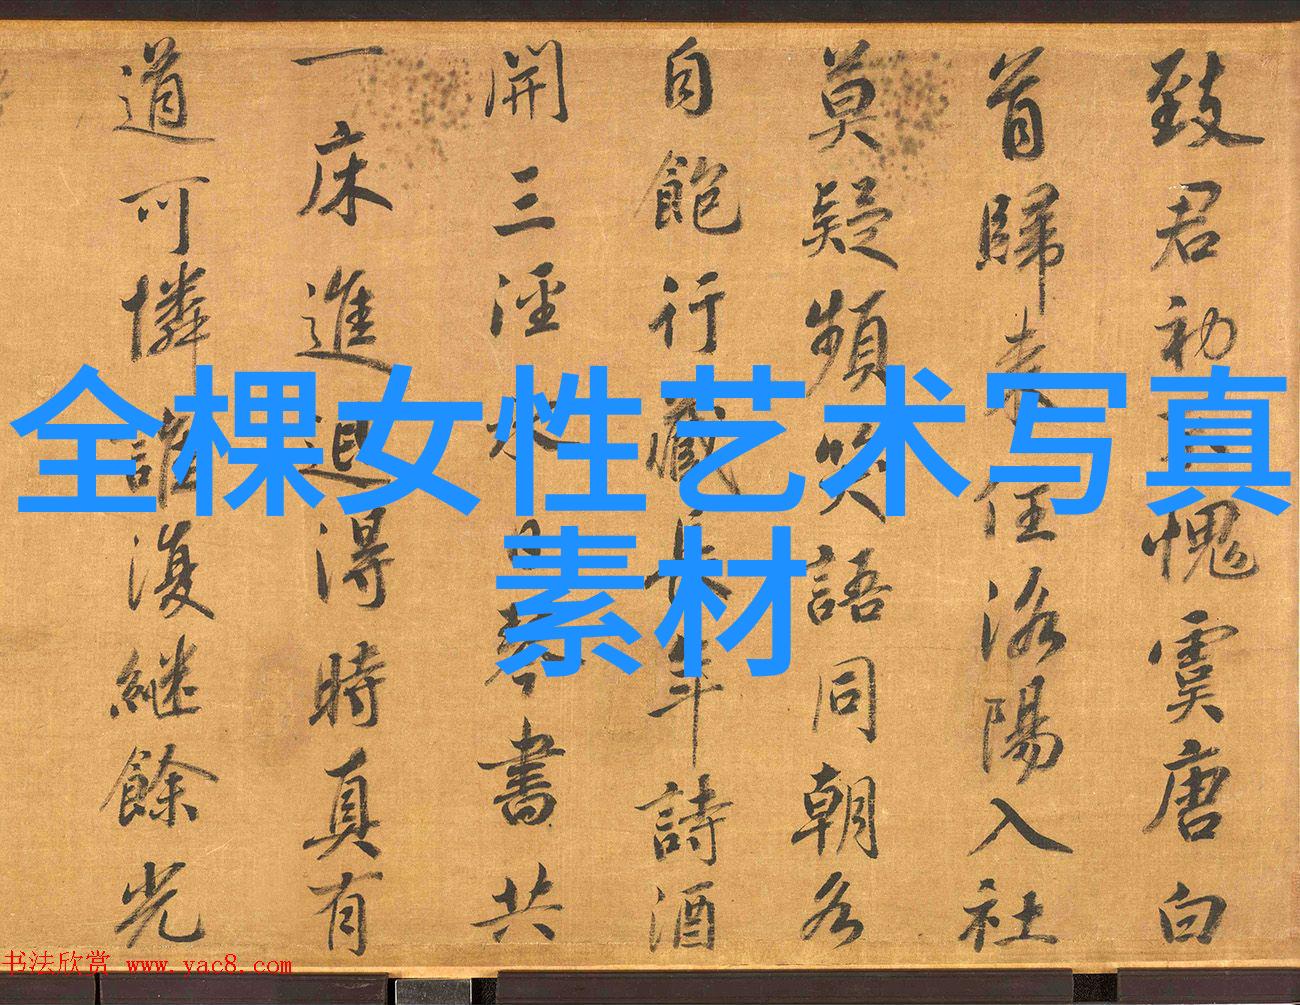 致君初愧虞唐白
首歸来住洛陽入社
莫疑頻笑語同朝各
自飽行藏長年詩酒
開三逕日琴書共
一床進退得時真有
道可憐誰復継餘光
全棵女性艺术写真
素材
书法欣赏 www.yac8.com